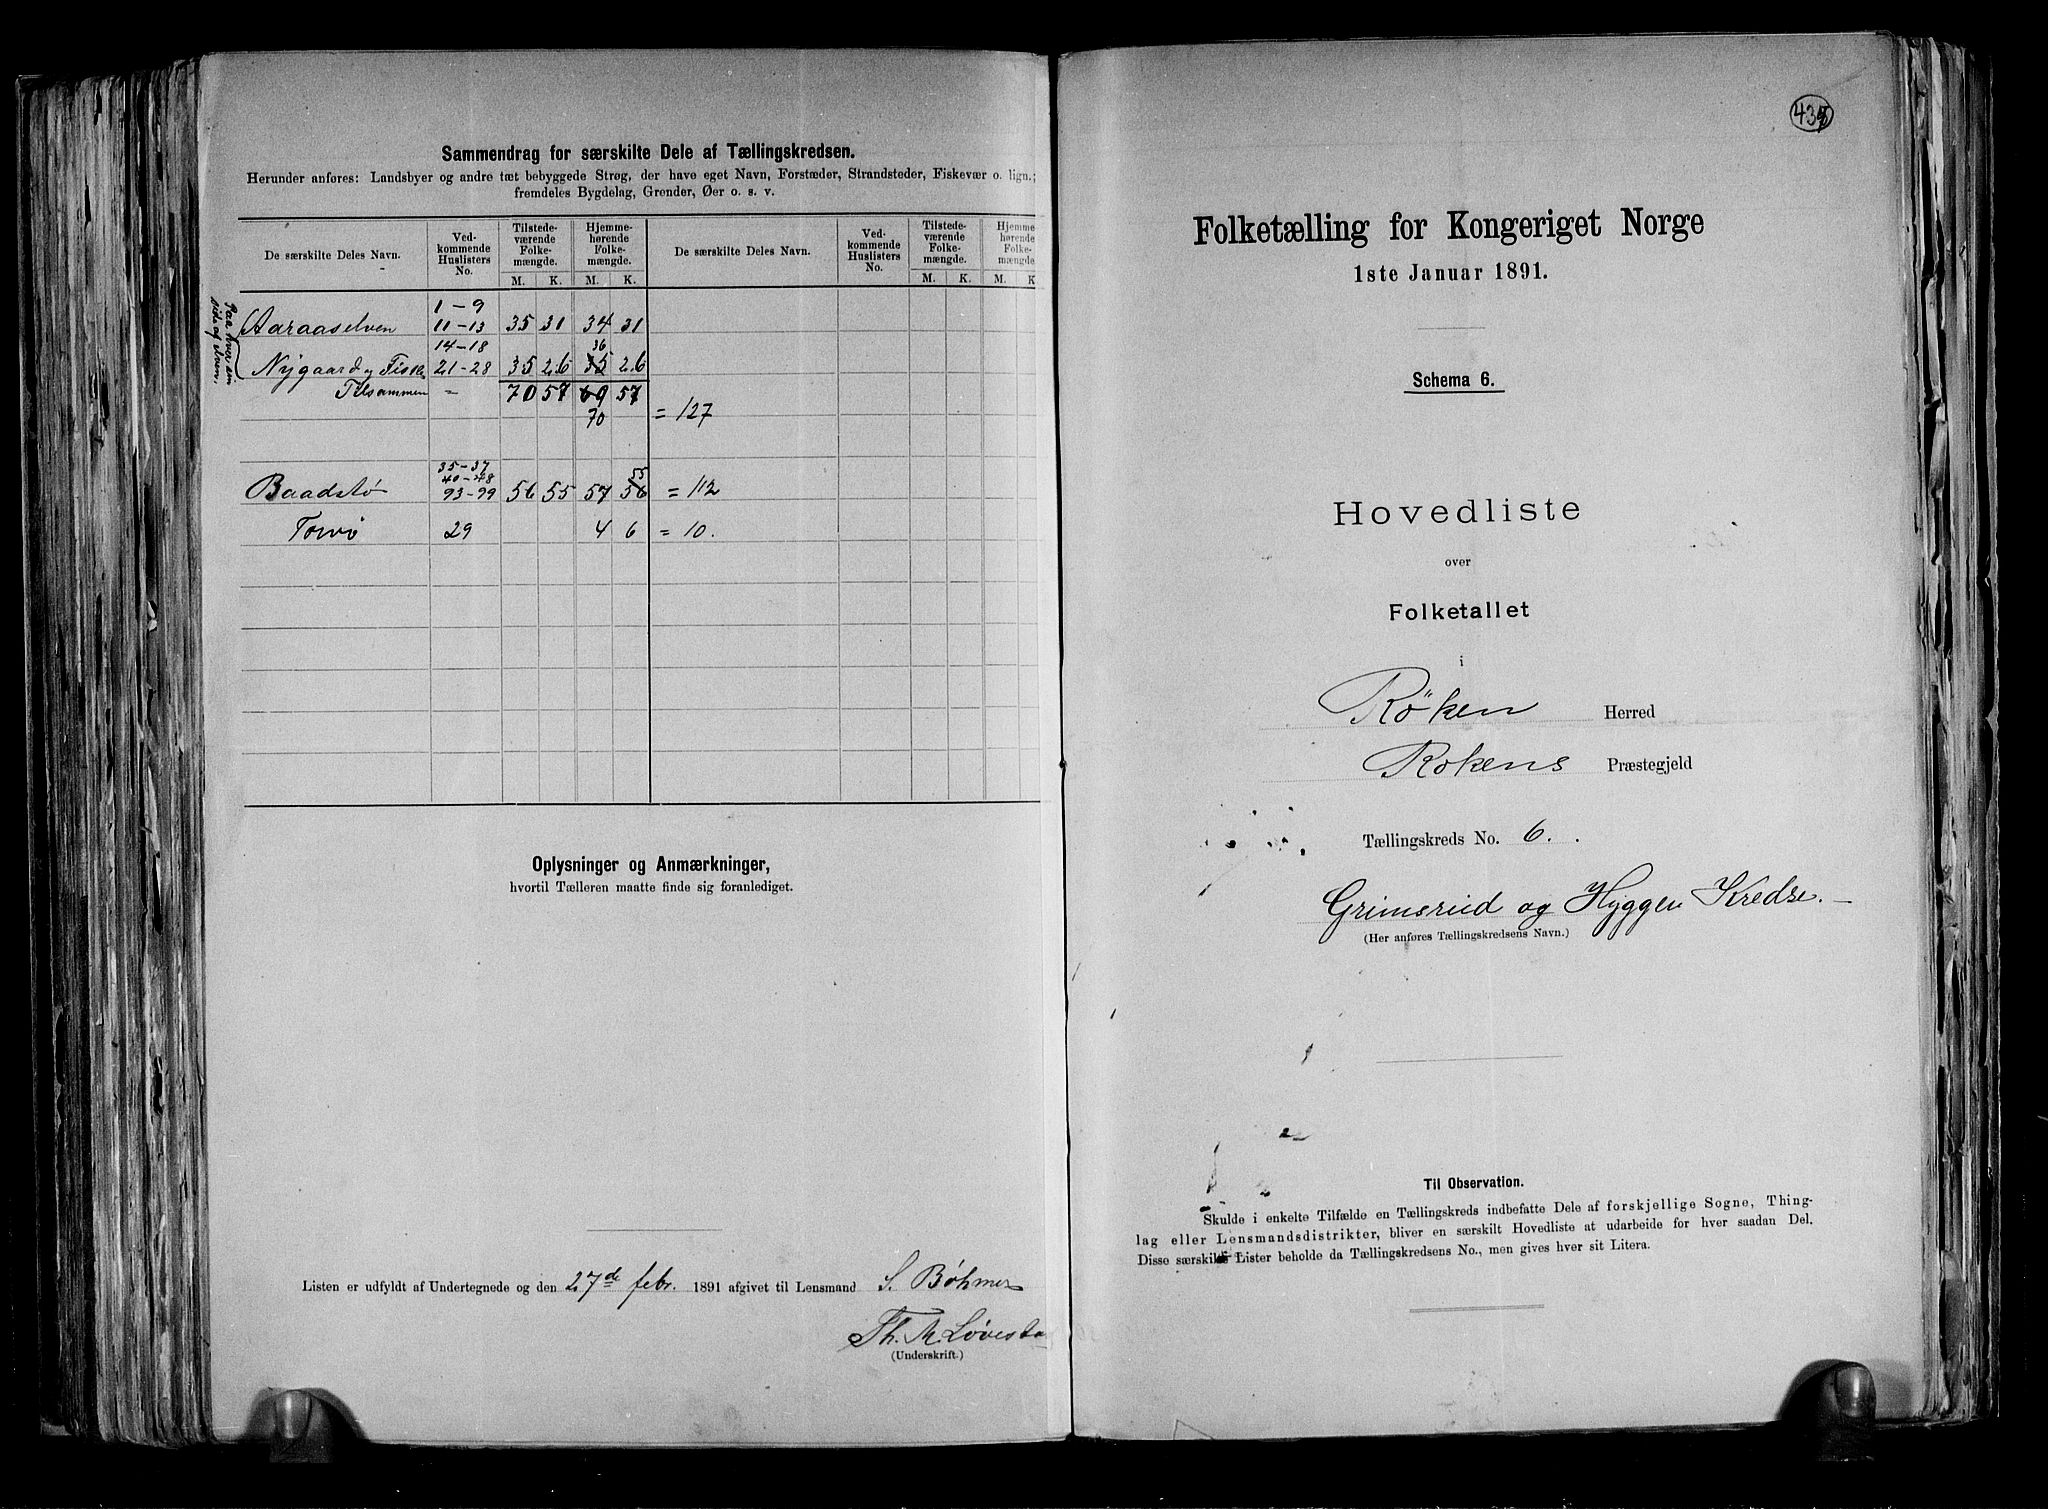 Sammendrag for særskilte Dele af Tællingskredsen.
Herunder anføres: Landsbyer og andre tæt bebyggede Strøg, der have eget Navn, Forstæder, Strandsteder, Fiskevær o. lign.;
fremdeles Bygdelag, Grender, Øer o. s. v.
De særskilte Deles Navn. Ved-kommende Huslisters No. Tilstede-værende Folke-mængde. Hjemme-hørende Folke-mængde. De særskilte Deles Navn. Ved-kommende Huslisters No. Tilstede-værende Folke-mængde. Hjemme-hørende Folke-mængde
M. K. M. K. M. K. M. K
1-9
Aaraaselven 11-13 35 31 34 31
14-18 36
Nygaard og Fisk 21-28 35 26 35 26
Tilsammen - 70 57 69 57
70 = 127
35-37
40-48 55
Baadstø 93-99 56 55 57 56 = 112
Torvø 29 4 6 = 10.
Oplysninger og Anmærkninger,
hvortil Tælleren maatte finde sig foranlediget.
Listen er udfyldt af Undertegnede og den 27de febr. 1891 afgivet til Lensmand S. Bøhmer
Th. M. Løvesta
(Underskrift.)
Folketælling for Kongeriget Norge
1ste Januar 1891.
Schema 6.
Hovedliste
over
Folketallet
i
Røken Herred
Røkens Præstegjeld
Tællingskreds No. 6.
Grimsrud og Hyggen Kredse.
(Her anføres Tællingskredsens Navn.)
Til Observation.
Skulde i enkelte Tilfælde en Tællingskreds indbefatte Dele af forskjellige Sogne, Thing-
lag eller Lensmandsdistrikter, bliver en særskilt Hovedliste at udarbeide for hver saadan Del.
Disse særskilte Lister beholde da Tællingskredsens No., men gives hver sit Litera.